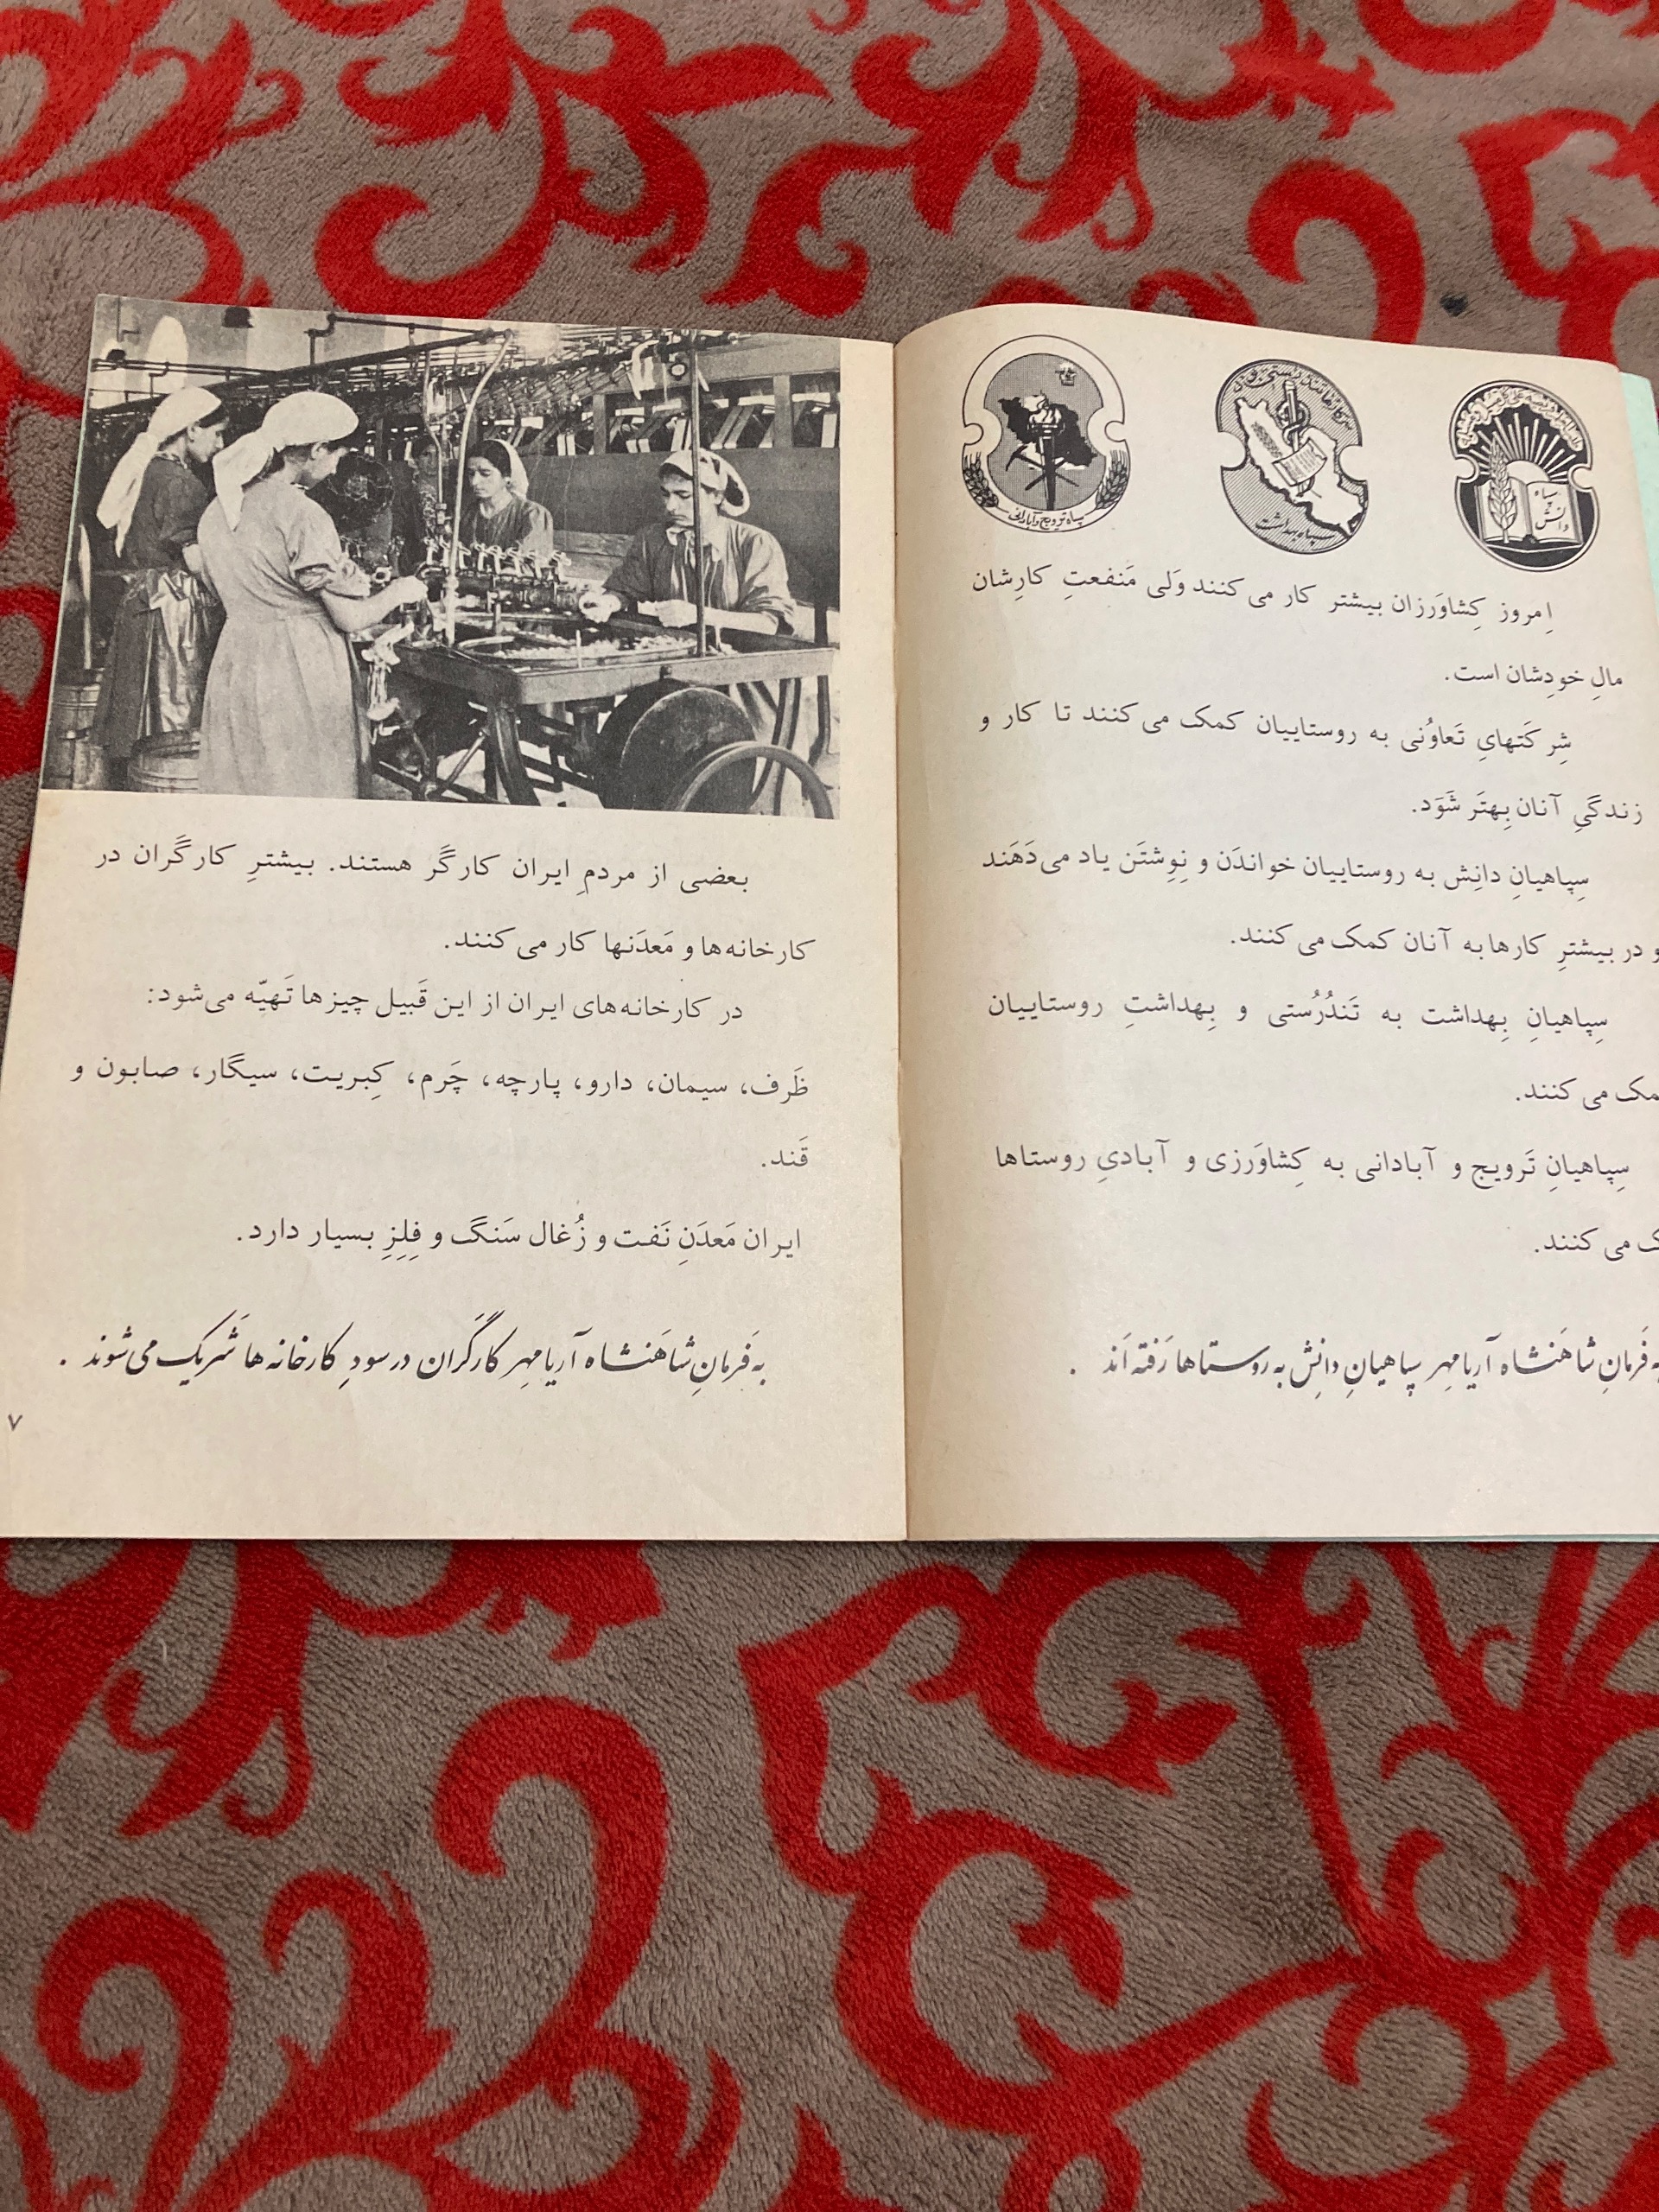 سپاه دانش
سپاه بهداشت
سپاه ترویج و آبادانی
اِمروز کِشاوَرزان بیشتر کار می‌کنند وَلی مَنفعتِ کارِشان
مالِ خودِشان است.
شِرکَتهایِ تَعاوُنی به روستاییان کمک می‌کنند تا کار و
زندگیِ آنان بِهتَر شَوَد.
سِپاهیانِ دانِش به روستاییان خواندَن و نِوِشتَن یاد می‌دَهَند
و در بیشترِ کارها به آنان کمک می‌کنند.
سِپاهیانِ بِهداشت به تَندُرُستی و بِهداشتِ روستاییان
مک می‌کنند.
سِپاهیانِ تَرویج و آبادانی به کِشاوَرزی و آبادیِ روستاها
ک می‌کنند.
به فَرمانِ شاهَنشاه آریامِهر سپاهیانِ دانِش به روستاها رَفته‌اَند .
بعضی از مردمِ ایران کارگَر هستند. بیشترِ کارگَران در
کارخانه‌ها و مَعدَنها کار می‌کنند.
در کارخانه‌های ایران از این قَبیل چیزها تَهیّه می‌شود:
ظَرف، سیمان، دارو، پارچه، چَرم، کِبریت، سیگار، صابون و
قَند.
ایران مَعدَنِ نَفت و زُغال سَنگ و فِلِزِ بسیار دارد.
به فَرمانِ شاهَنشاه آریامِهر کارگَران در سودِ کارخانه‌ها شَریک می‌شوند .
۷